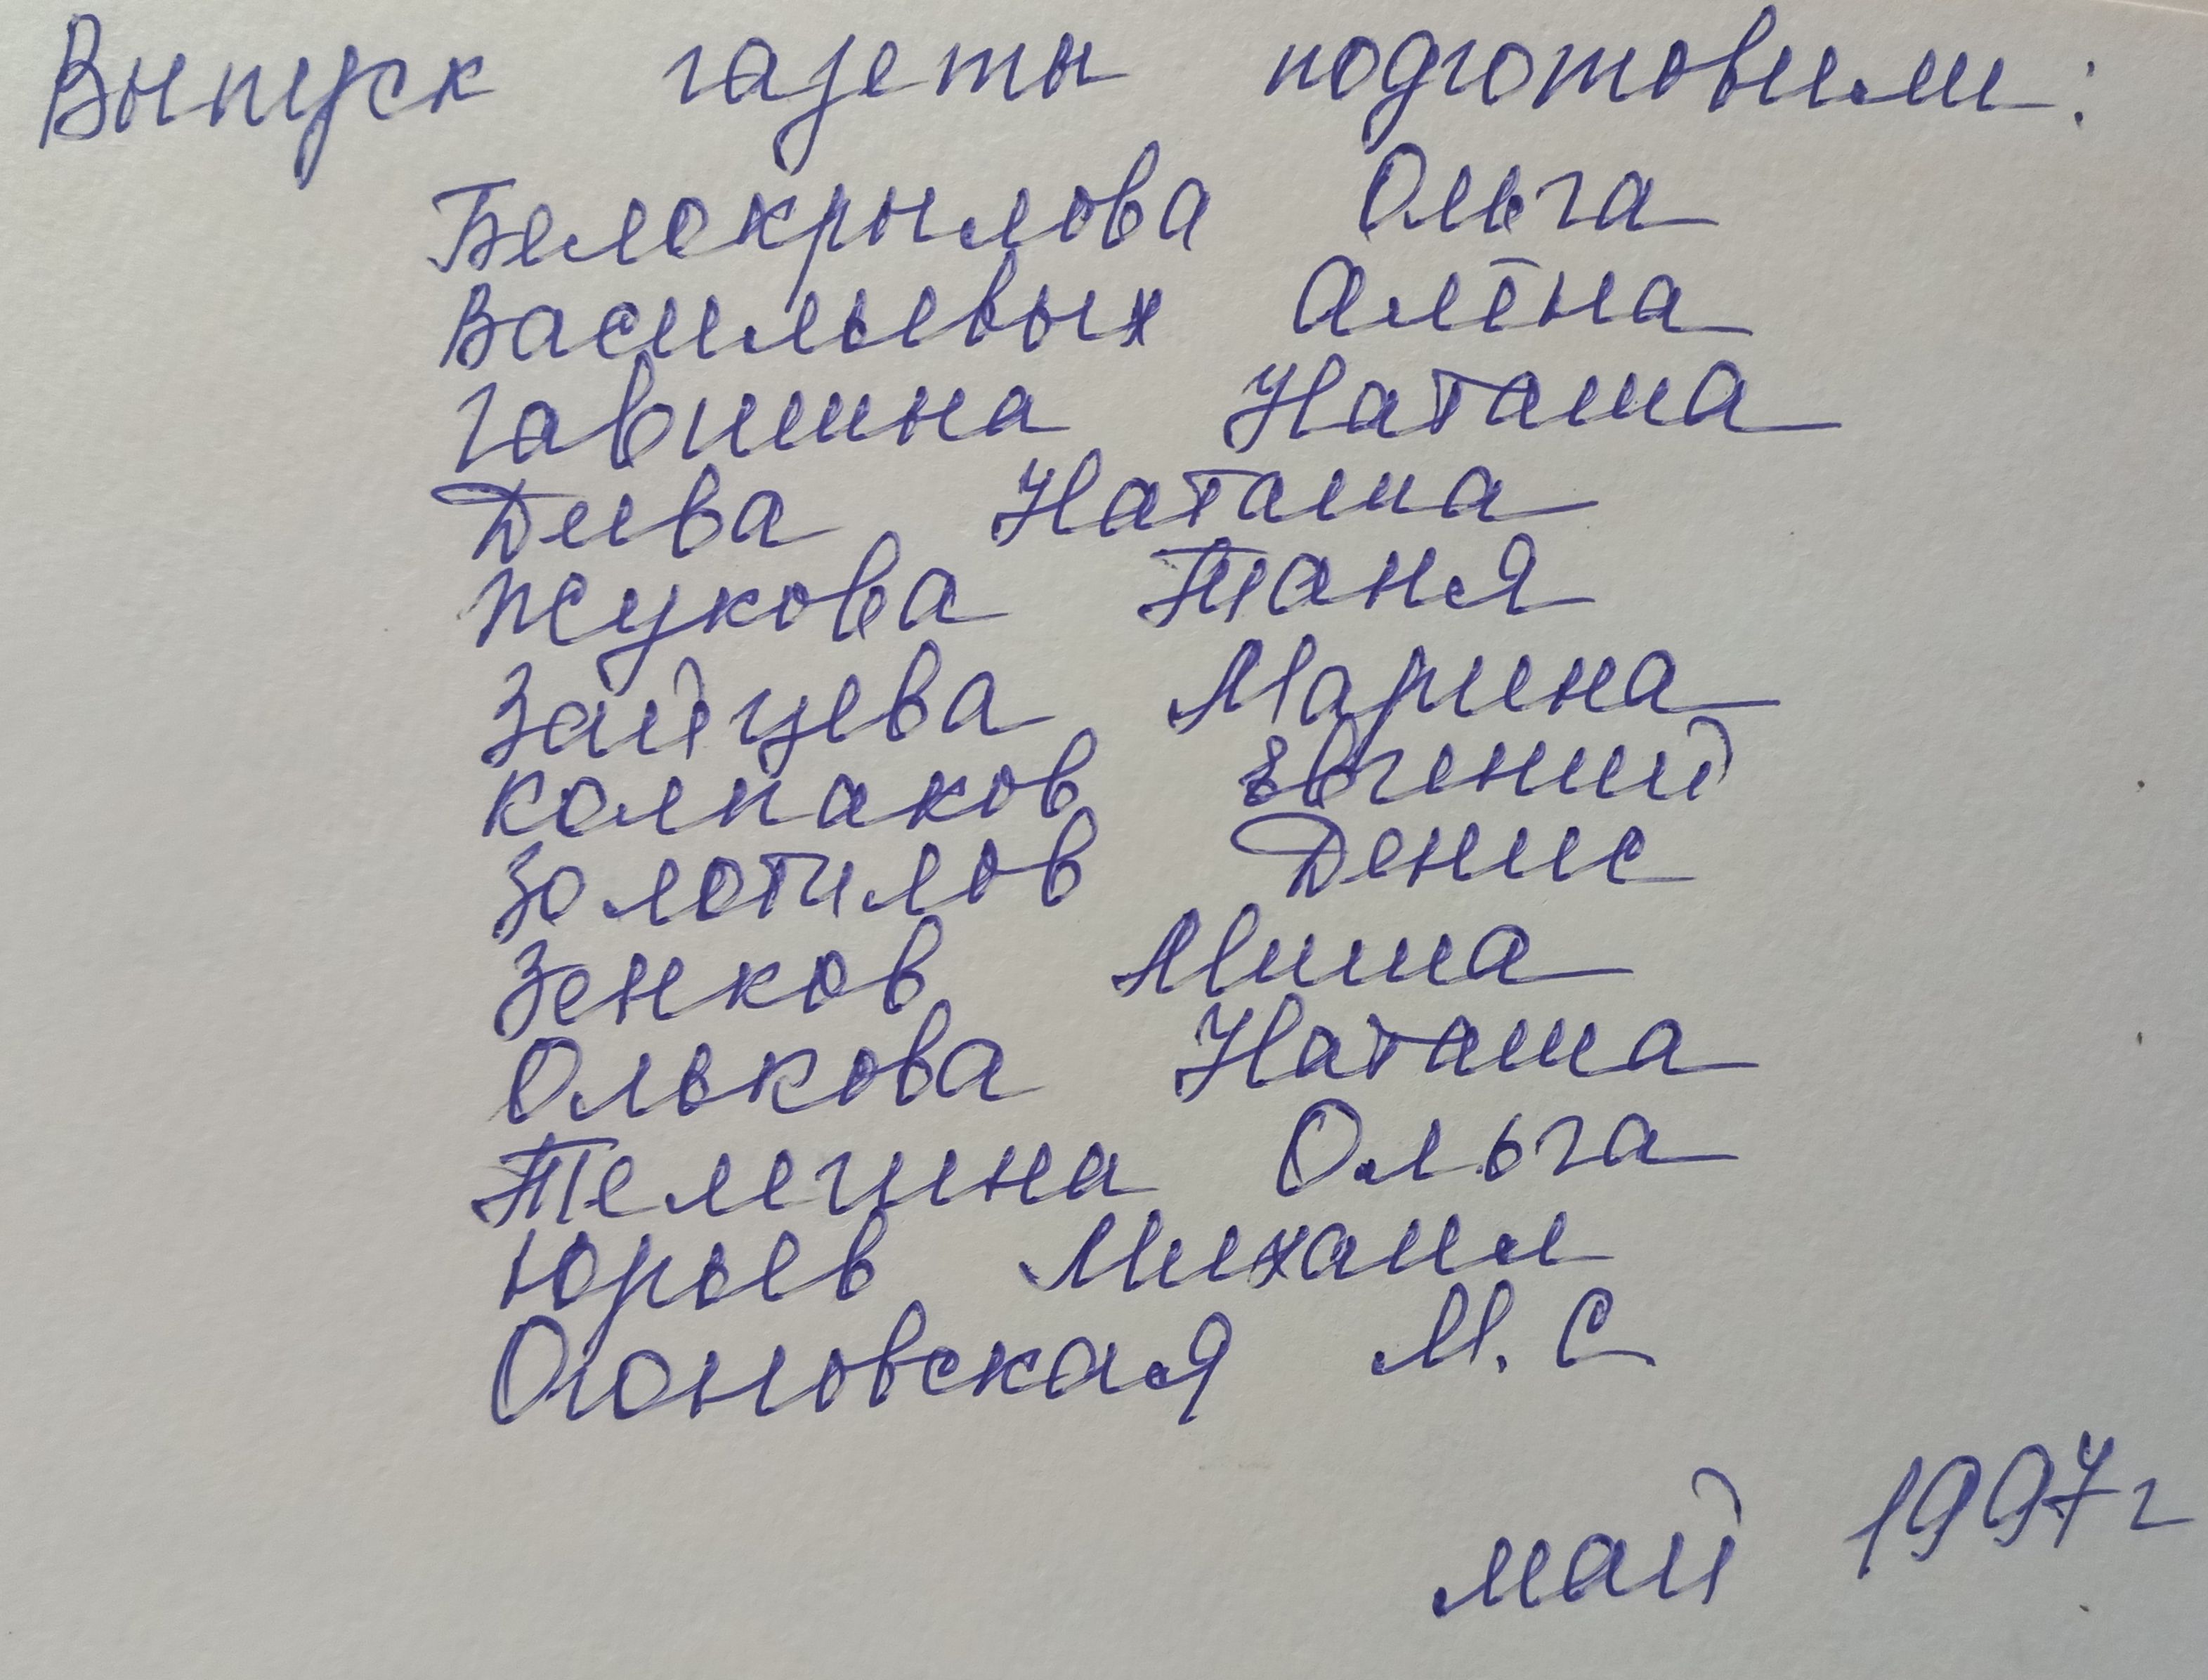 Выпуск газеты подготовили:
Белокрылова Ольга
Васильевых Алёна
Гавишна Наташа
Деева Наташа
Жукова Таня
Зайцева Марина
Колпаков Евгений
Золотилов Денис
Зенков Миша
Олькова Наташа
Телегина Ольга
Юрьев Михаил
М.С
май 1997г